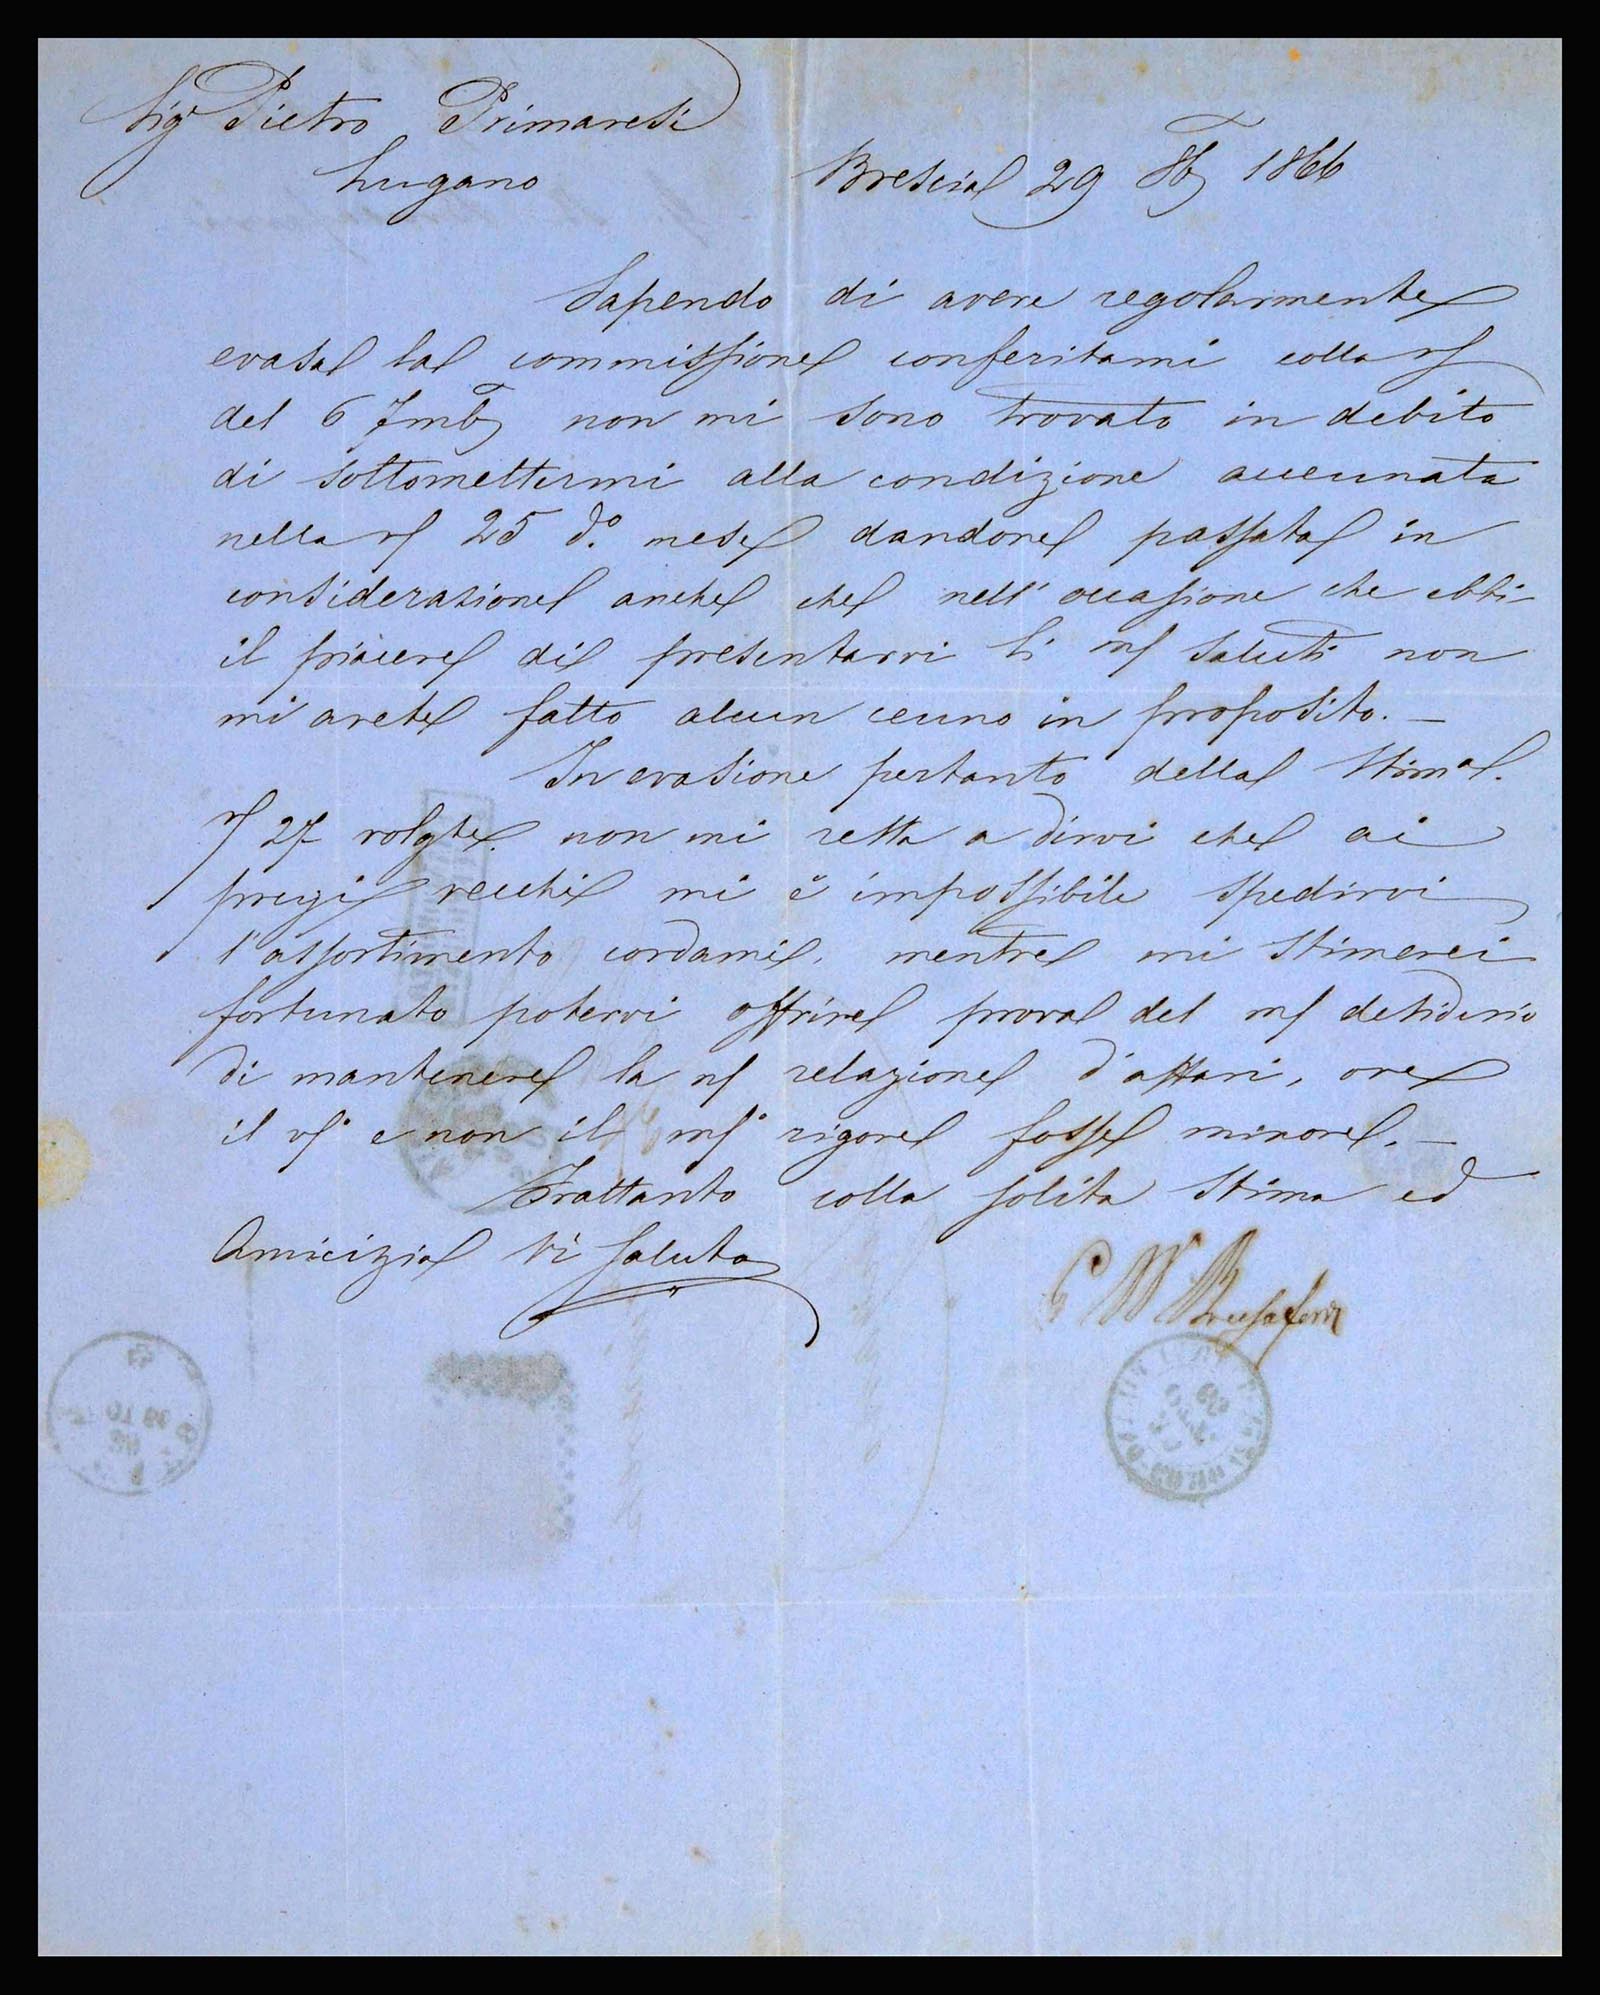 Sigr Pietro Primavesi
Lugano
Brescia 29 8b 1866
Sapendo di avere regolarmente
evasa la commissione conferitami colla v/
del 6 7mb non mi sono trovato in debito
di sottomettermi alla condizione accennata
nella v/ 25 do. mese dandone passata in
considerazione anche che nell'occasione che ebbi
il piacere di presentarvi li m/ saluti non
mi avete fatto alcun cenno in proposito. —
In evasione pertanto della Stima.
v/ 27 volgte. non mi resta a dirvi che ai
prezzi vecchi mi è impossibile spedirvi
l'assortimento cordami, mentre mi stimerei
fortunato potervi offrire prova del m/ desiderio
di mantenere la n/ relazione d'affari, ove
il v/o e non il m/o rigore fosse minore. —
Frattanto colla solita stima ed
Amicizia Vi saluto